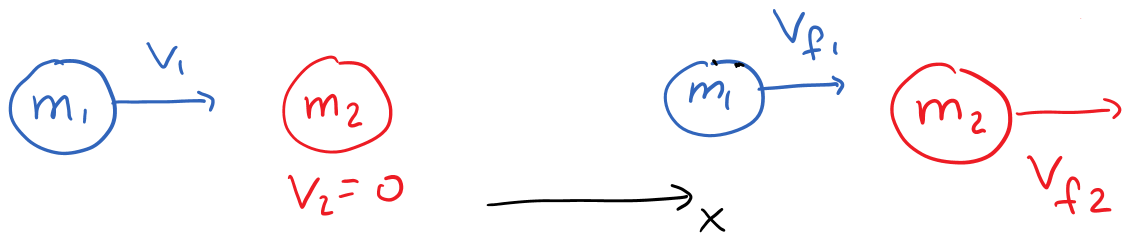 V₁
m₁
m₂
V₂ = 0
V_f₁
m₁
m₂
V_f₂
x